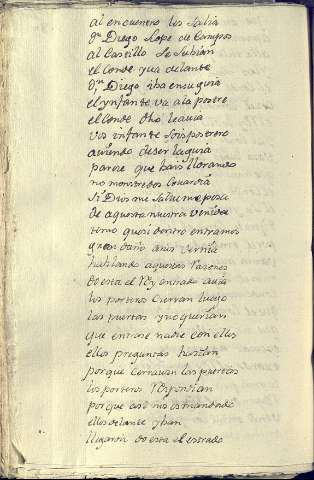 al encuentro les salia
Dn Diego Lope de Campos
al Castillo se subian
el Conde yua delante
Dn Diego iba en su guia
el ynfante va a la postre
el Conde dho le auia
vos infante sois postrero
auiendo de ser la guia
parese que bais llorando
no mostredes couardia
si Dios me salue me pesa
de aquesta nuestra venida
temo que si dentro entramos
gran daño a nos vernia
hablando aquestas rasones
do esta el Rey entrado auia
los porteros cierran luego
las puertas y no querian
que entrase nadie con ellos
ellos preguntas hasian
porque cerrauan las puertas
los porteros respondian
porque asi nos es mandado
ellos delante yban
llegaron do esta el estrado